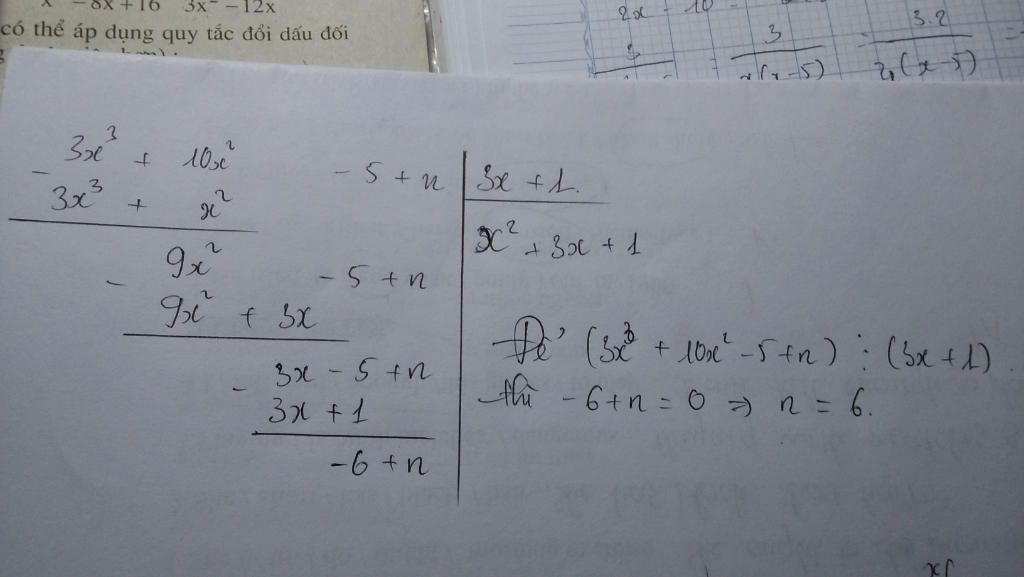 x² - 8x + 16 3x² - 12x
có thể áp dụng quy tắc đổi dấu đối
2x - 10
3
x(x-5)
3.2
2(x-5)
- 3x³ + 10x² - 5 + n | 3x + 1
3x³ + x²
x² + 3x + 1
- 9x² - 5 + n
9x² + 3x
- 3x - 5 + n
3x + 1
-6 + n
Để (3x³ + 10x² - 5 + n) ⋮ (3x + 1)
thì -6 + n = 0 => n = 6.